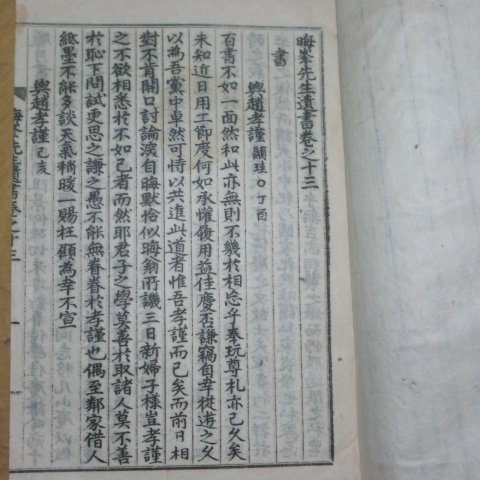 晦峯先生遺書卷之十三
書
與趙孝謹 顯珪○丁酉
百書不如一面然和此亦無則不幾於相忘乎奉玩尊札亦已久矣
未知近日用工節度何如承懼復用益佳慶否謙竊自幸從遊之久
以為吾黨中卓然可恃以共進此道者惟吾孝謹而已矣而前日相
對不肯開口討論深自晦默恰似晦翁所譏三日新婦子樣豈孝謹
之不欲相悉於不如己者而然耶君子之學莫善於取諸人莫不善
於恥下問試更思之謙之愚不能無眷眷於孝謹也偶至鄰家借人
紙墨不能多談天氣稍暖一賜枉顧為幸不宣
與趙孝謹 己亥
晦峯先生遺書卷之十三